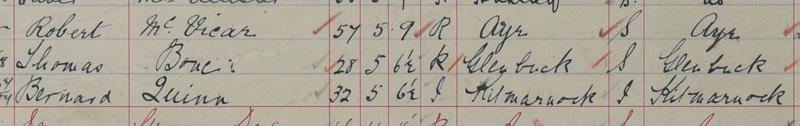 Robert McVicar 57 5 9 R Ayr S Ayr
Thomas 28 5 6½ R Glenbuck S Glenbuck
Bernard Quinn 32 5 6½ I Kilmarnock I Kilmarnock